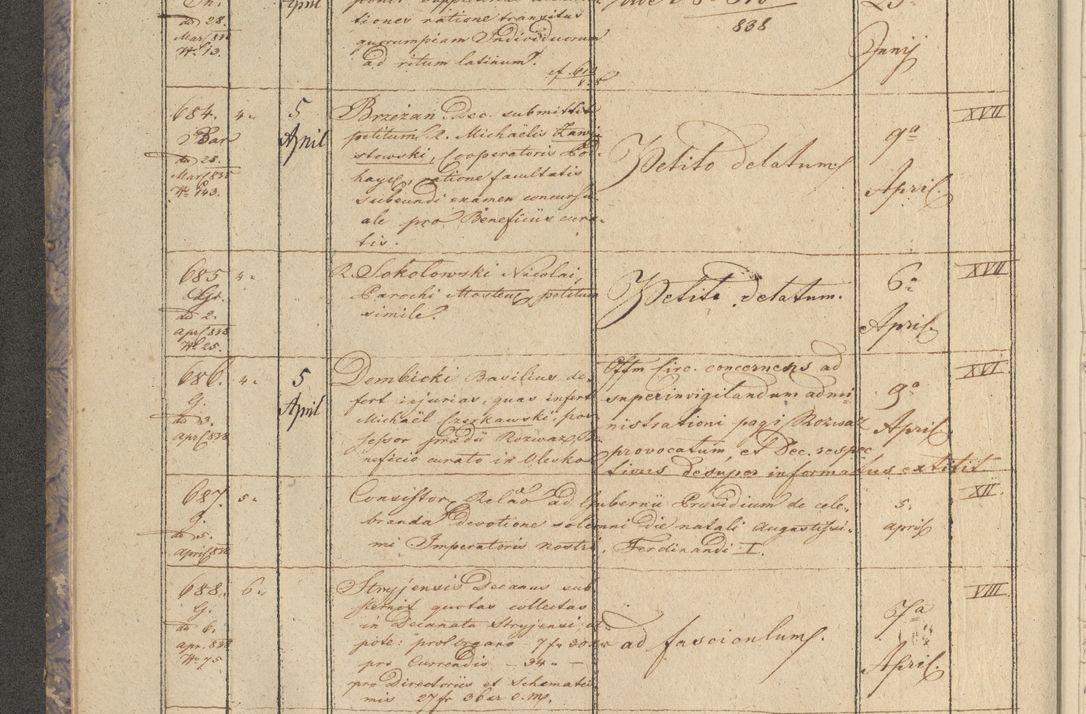 April
tiones ratione transitus
quorumpiam Individuorum
ad ritum latinum.
838
dd 28.
Mar/838
No 13.
Junij
684.
4.
5
April
Brzeżan. Dec. submittit
petitum R. Michaëlis Zawi-
stowski, Cooperatoris
ratione facultatis
subeundi examen concursu-
ale pro Beneficiis cura-
tis.
Petito delatum.
9a
April.
XVII
dd 25.
Mar/838
No 143.
685
4.
R. Sokolowski Nicolai,
Parochi Mosteno petitum
simile.
Petito delatum.
6a
April.
XVII
dd 2.
apr/838
No 25.
686.
4.
5
April
Dembicki Basilius de-
fert injurias, quas infert
Michaël Czerkawski pos-
sessor prædii Rozwaz, Be-
neficio curato in Olesko
Offm Circ. concernens ad
superinvigilandum admi-
nistrationi pagi Rozwaz
provocatum, et Dec. respec
tivus desuper informatus extitit
9a
April
XVI
G.
dd 3.
apr/838
687.
5.
Consistor. Relao ad Gubernii Præsidium de cele-
branda devotione solemni die natali Augustissi-
mi Imperatoris nostri, Ferdinandi I.
5.
april
XII
G.
dd 5.
April/838
688.
6.
Stryjensis Decanus sub-
sternit quotas collectas
in Decanatu Stryjensi ut
pote: pro Organo 7 fr 30 xr
pro Currendis – 34 „ –
pro Directoriis et Schematis-
mis 27 fr 36 xr C.M.
ad fasciculum.
67a
April.
VIII
G.
dd 6.
apr. 838
No 75